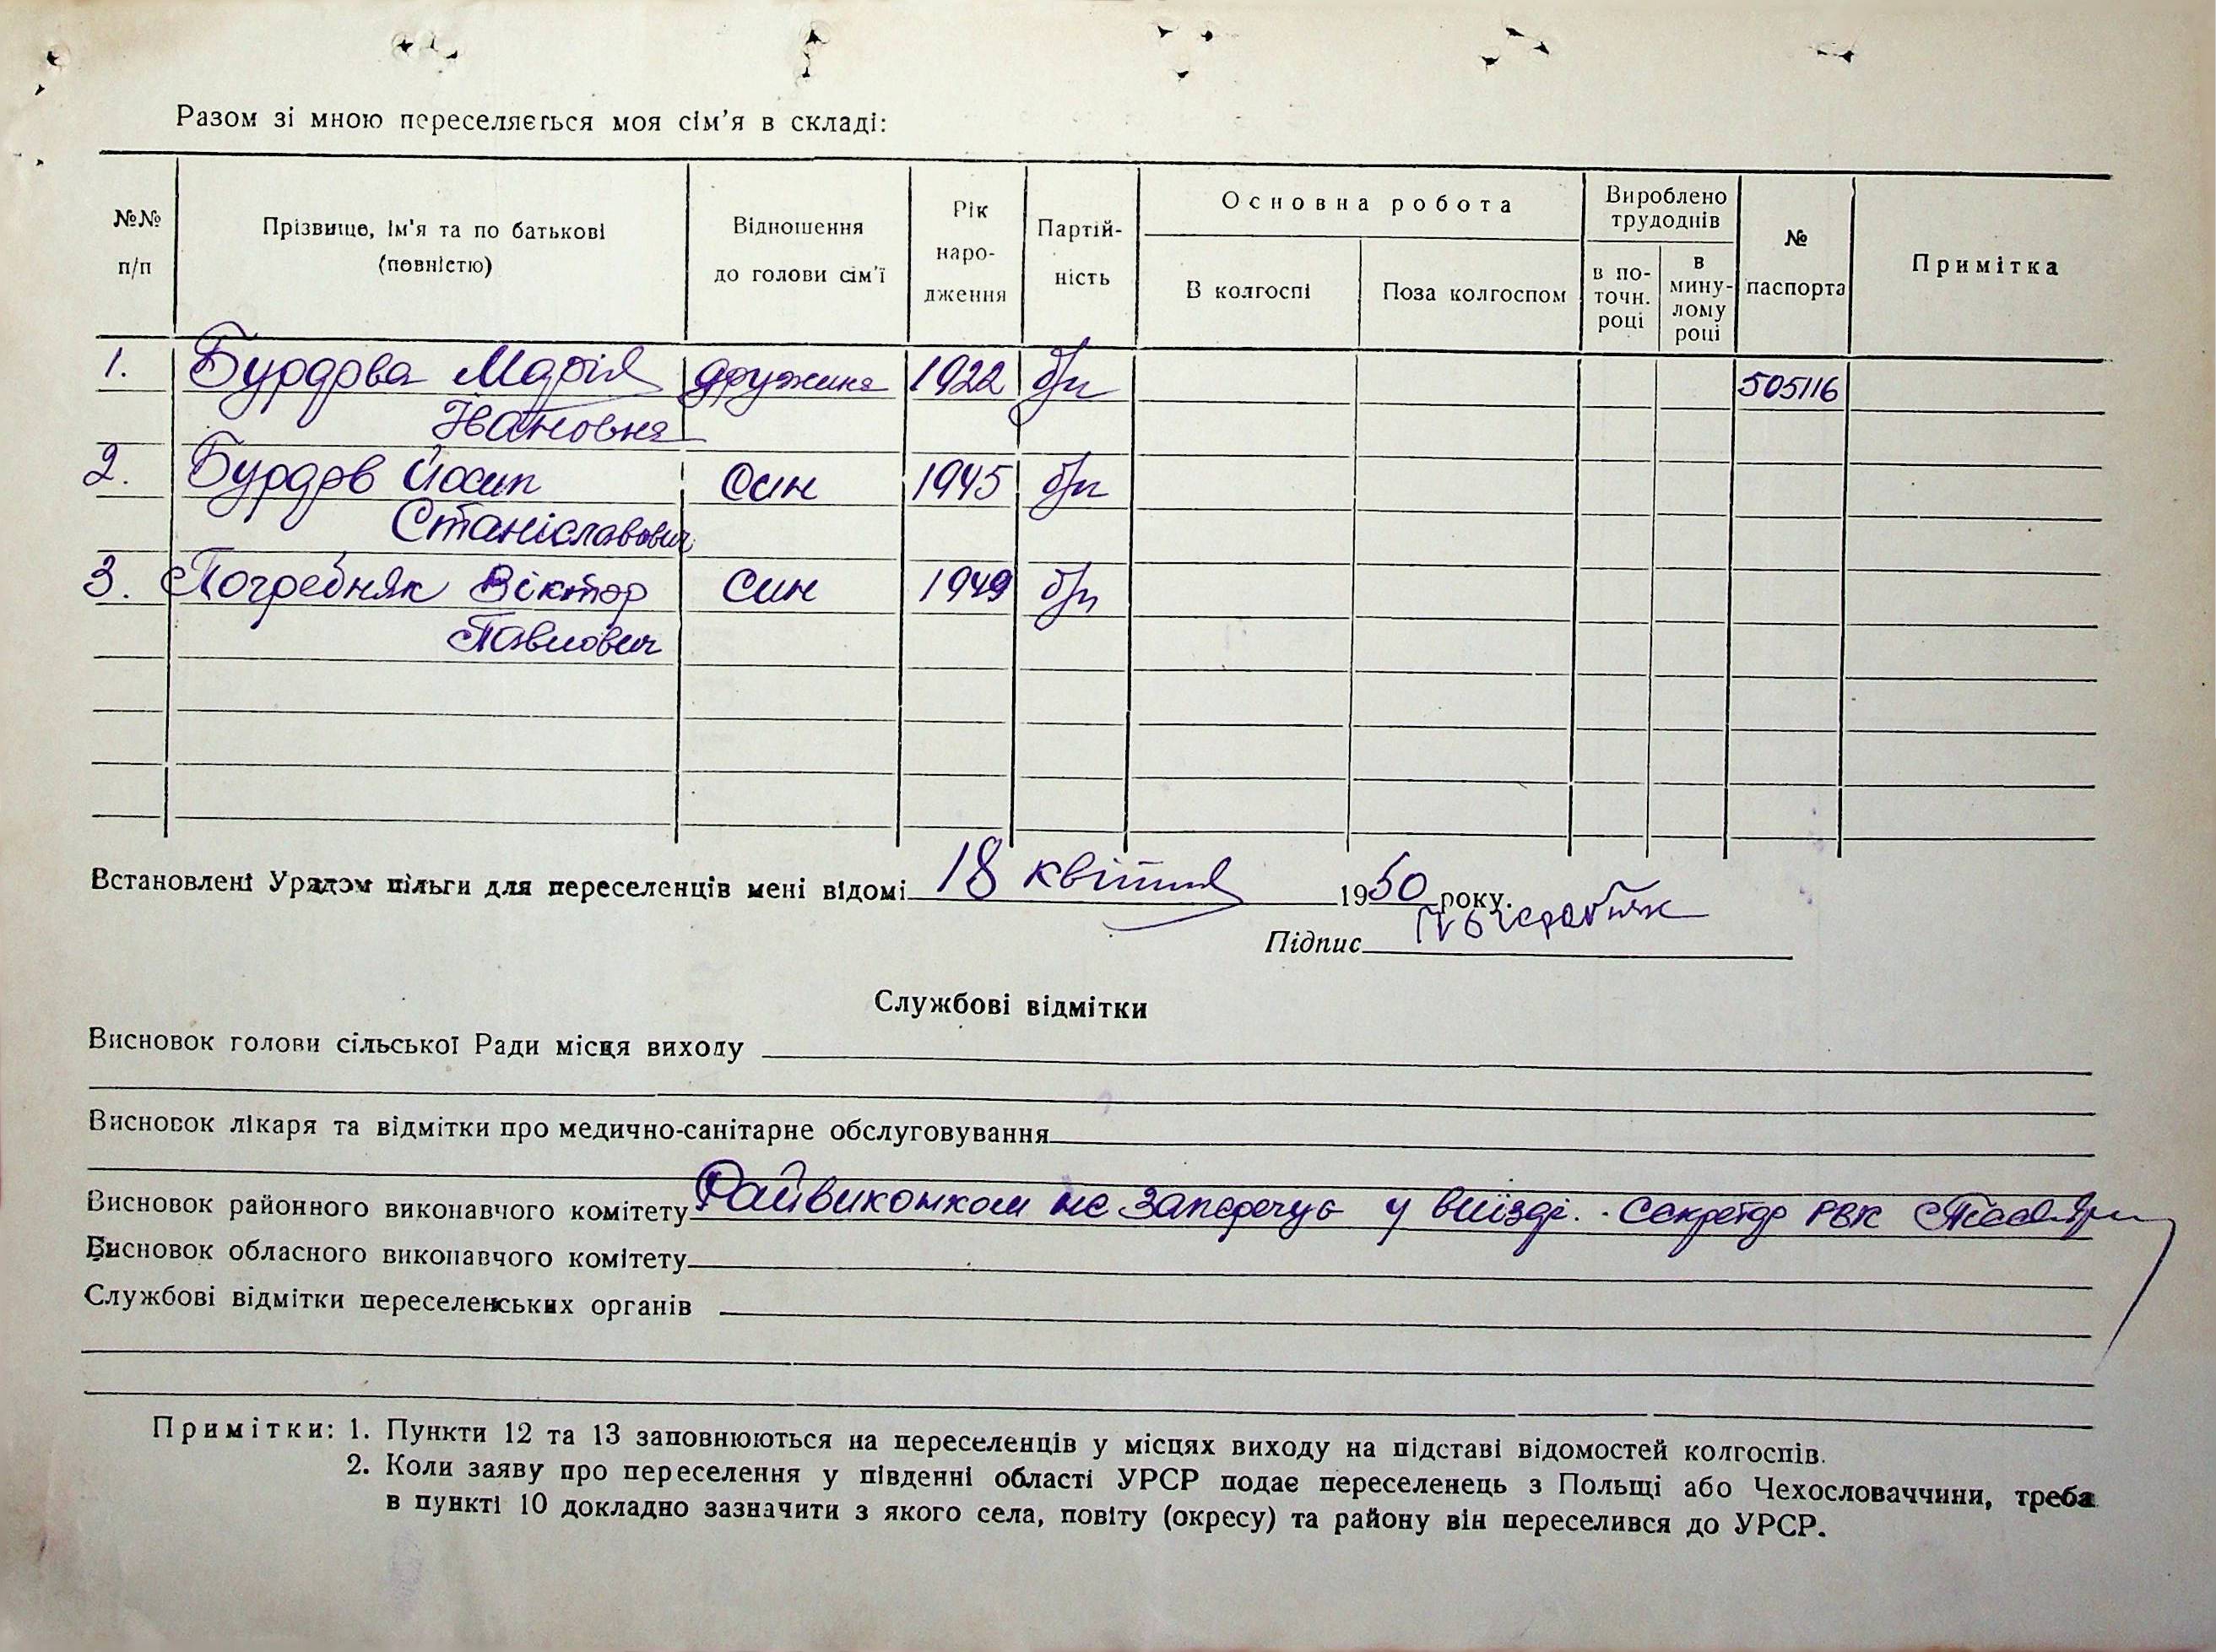 Разом зі мною переселяється моя сім'я в складі:
№№ п/п
Прізвище, ім'я та по батькові (повністю)
Відношення до голови сім'ї
Рік народження
Партійність
Основна робота
В колгоспі
Поза колгоспом
Вироблено трудоднів
в поточн. році
в минулому році
№ паспорта
Примітка
1. Бурдова Марія дружина 1922 б/п 505116
Івановна
2. Бурдов Йосип син 1945 б/п
Станіславович
3. Погребняк Віктор син 1949 б/п
Павлович
Встановлені Урядом пільги для переселенців мені відомі 18 квітня 1950 року.
Підпис
Службові відмітки
Висновок голови сільської Ради місця виходу
Висновок лікаря та відмітки про медично-санітарне обслуговування
Висновок районного виконавчого комітету Райвиконком не заперечує у виїзді. Секретар РВК
Висновок обласного виконавчого комітету
Службові відмітки переселенських органів
Примітки: 1. Пункти 12 та 13 заповнюються на переселенців у місцях виходу на підставі відомостей колгоспів.
2. Коли заяву про переселення у південні області УРСР подає переселенець з Польщі або Чехословаччини, треба
в пункті 10 докладно зазначити з якого села, повіту (окресу) та району він переселився до УРСР.